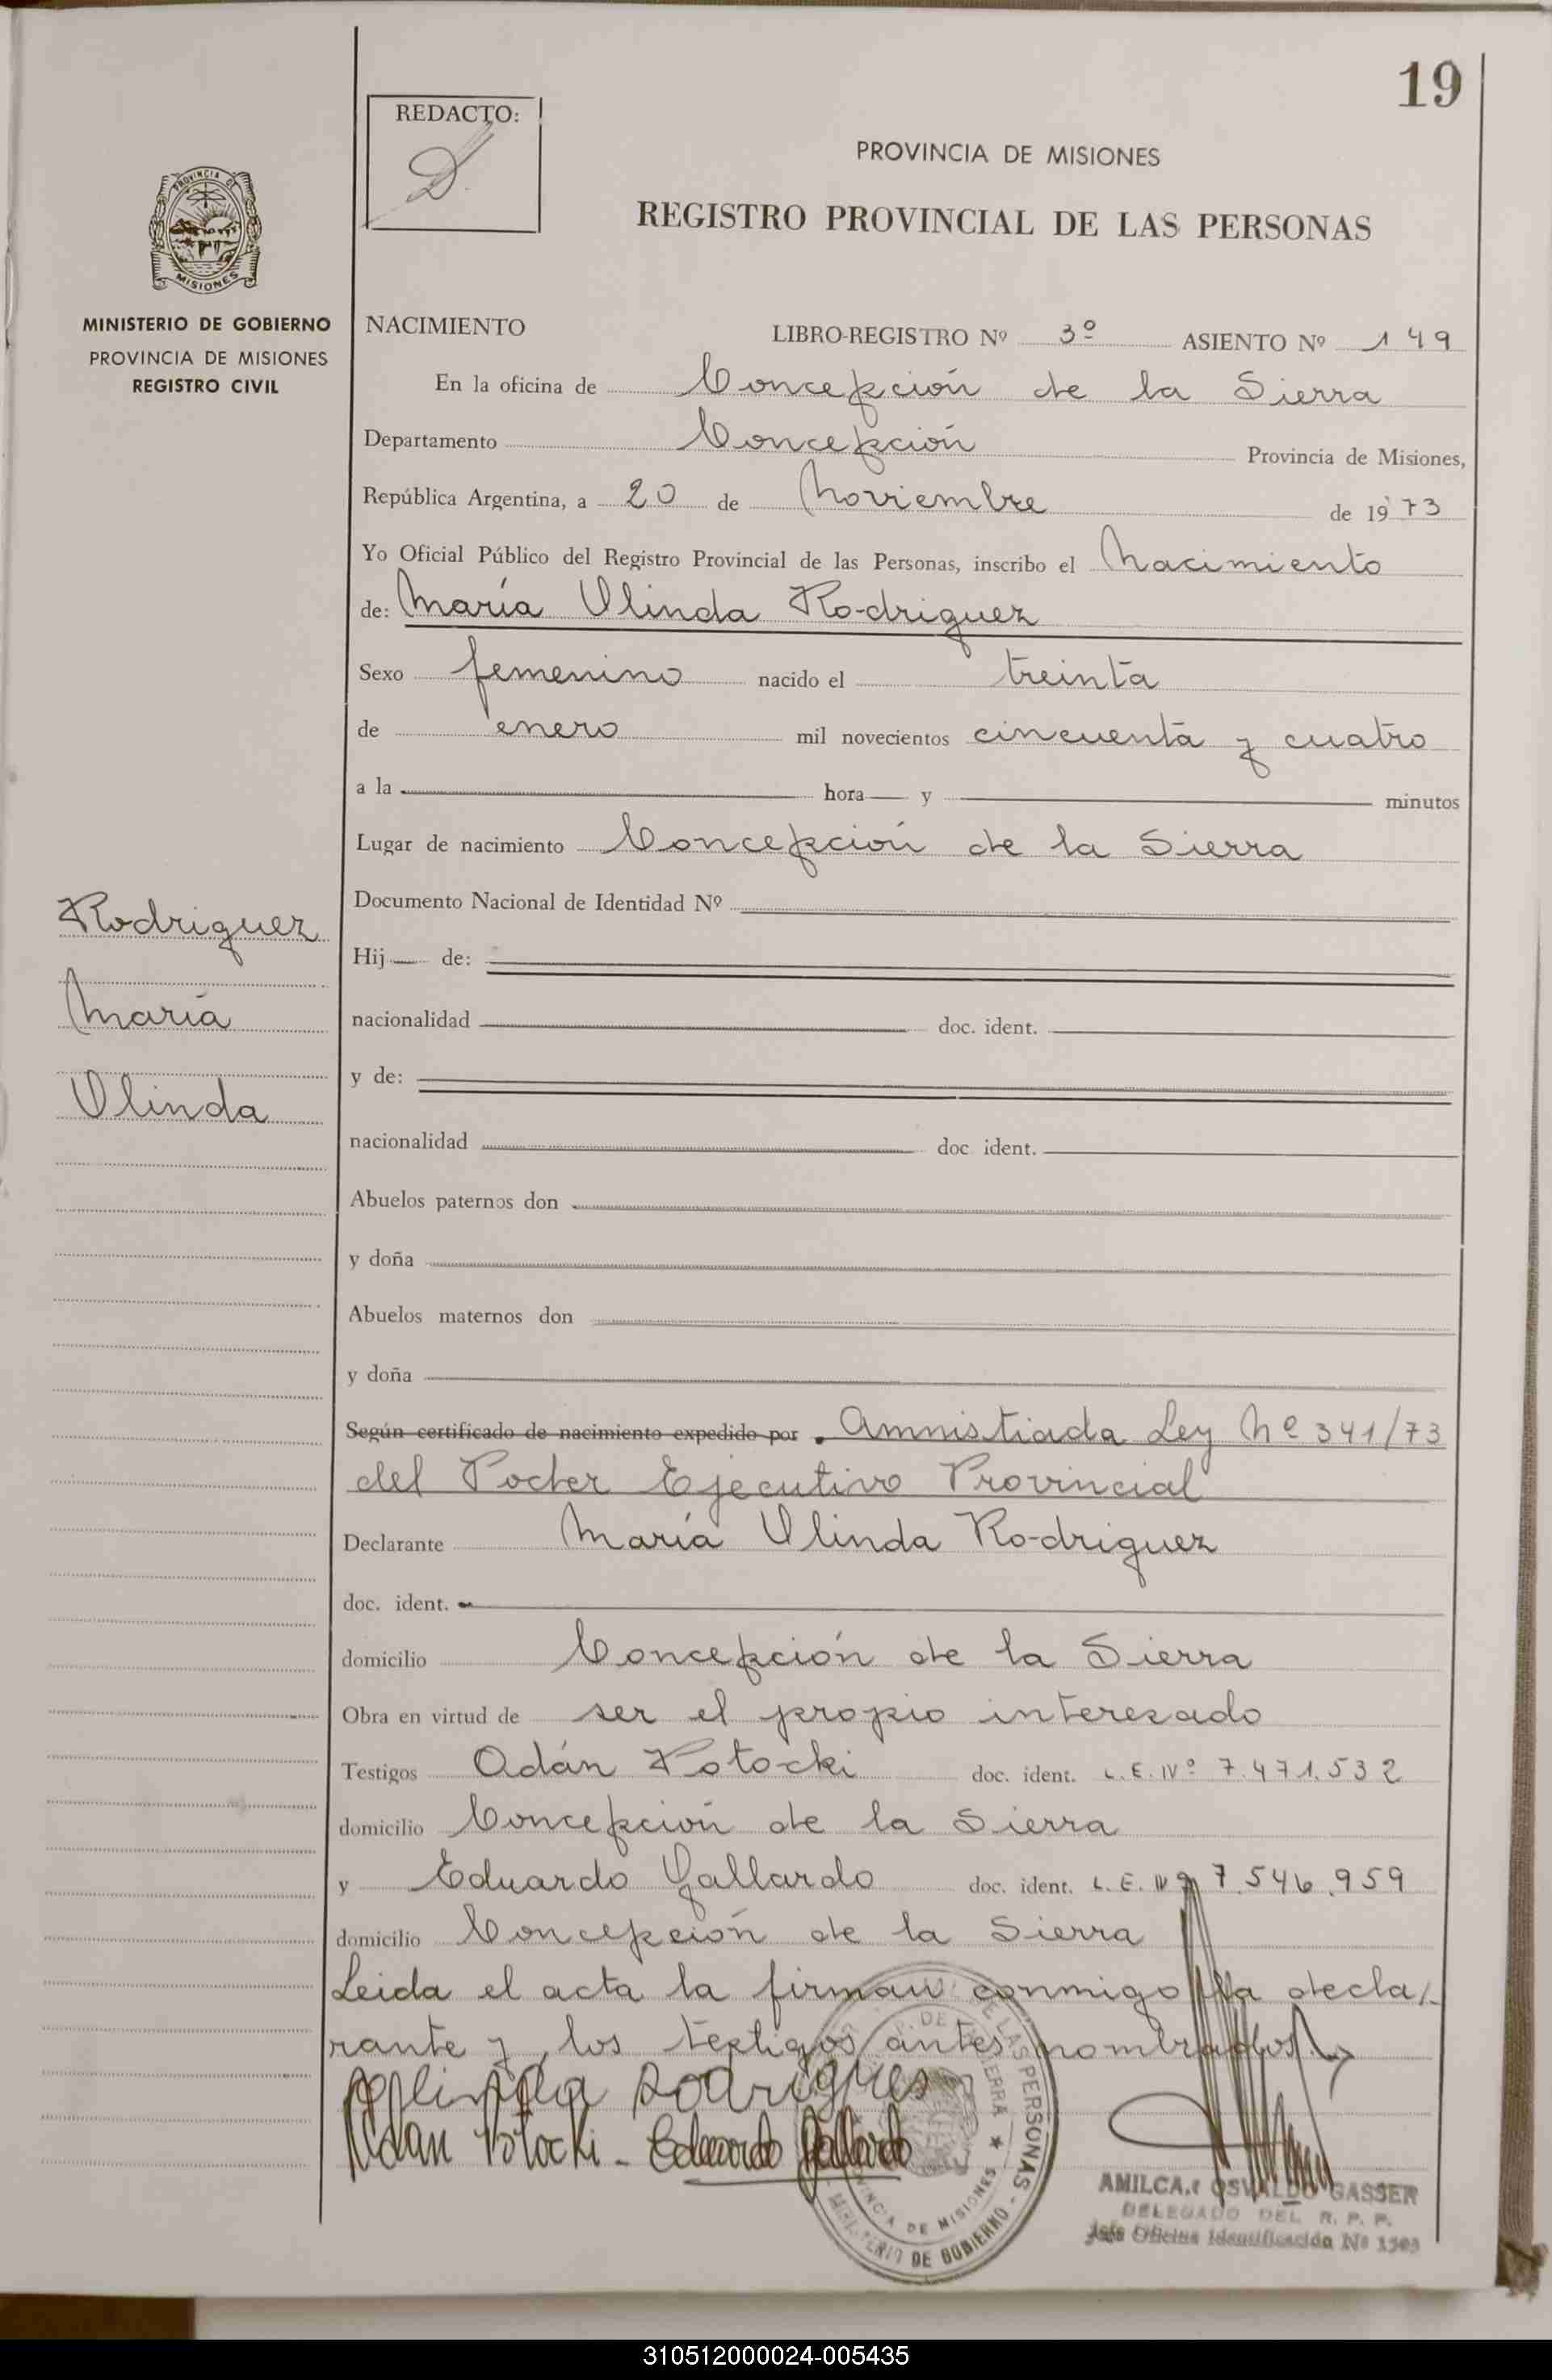 19
REDACTO:
PROVINCIA DE MISIONES
REGISTRO PROVINCIAL DE LAS PERSONAS
PROVINCIA DE
MISIONES
MINISTERIO DE GOBIERNO
PROVINCIA DE MISIONES
REGISTRO CIVIL
NACIMIENTO LIBRO-REGISTRO Nº 3º ASIENTO Nº 149
En la oficina de Concepción de la Sierra
Departamento Concepción Provincia de Misiones,
República Argentina, a 20 de Noviembre de 1973
Yo Oficial Público del Registro Provincial de las Personas, inscribo el Nacimiento
de: María Olinda Rodriguez
Sexo femenino nacido el treinta
de enero mil novecientos cincuenta y cuatro
a la hora y minutos
Lugar de nacimiento Concepción de la Sierra
Documento Nacional de Identidad Nº
Rodriguez
María
Olinda
Hij de:
nacionalidad doc. ident.
y de:
nacionalidad doc. ident.
Abuelos paternos don
y doña
Abuelos maternos don
y doña
Según certificado de nacimiento expedido por Amnistiada Ley Nº 341/73
del Poder Ejecutivo Provincial
Declarante María Olinda Rodriguez
doc. ident.
domicilio Concepción de la Sierra
Obra en virtud de ser el propio interesado
Testigos Adán Potocki doc. ident. L.E. Nº 7.471.532
domicilio Concepción de la Sierra
y Eduardo Gallardo doc. ident. L.E. Nº 7.546.959
domicilio Concepción de la Sierra
Leida el acta la firman conmigo la decla/
rante y los testigos antes nombrados.
olinda Rodrigues
Adan Potocki - Eduardo Gallardo
DE LAS PERSONAS - MINISTERIO DE GOBIERNO -
PROVINCIA DE MISIONES
SIERRA
AMILCAR OSVALDO GASSER
DELEGADO DEL R. P. P.
Jefe Oficina Identificación Nº 1503
310512000024-005435